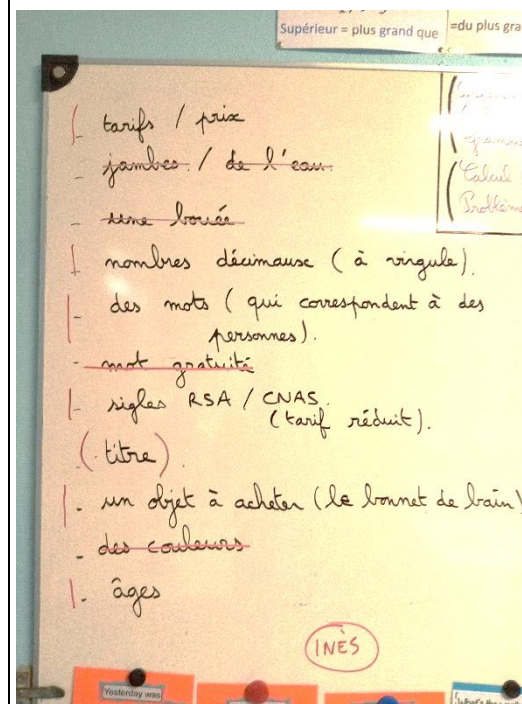 Supérieur = plus grand que
=du plus gra
tarifs / prix
- jambes / de l'eau
- une bouée
nombres décimaux (à virgule).
- des mots (qui correspondent à des
personnes).
- mot gratuité
- sigles RSA / CNAS
(tarif réduit).
- (titre).
- un objet à acheter (le bonnet de bain)
- des couleurs
- âges
INÈS
Calcul
Problème
Yesterday was